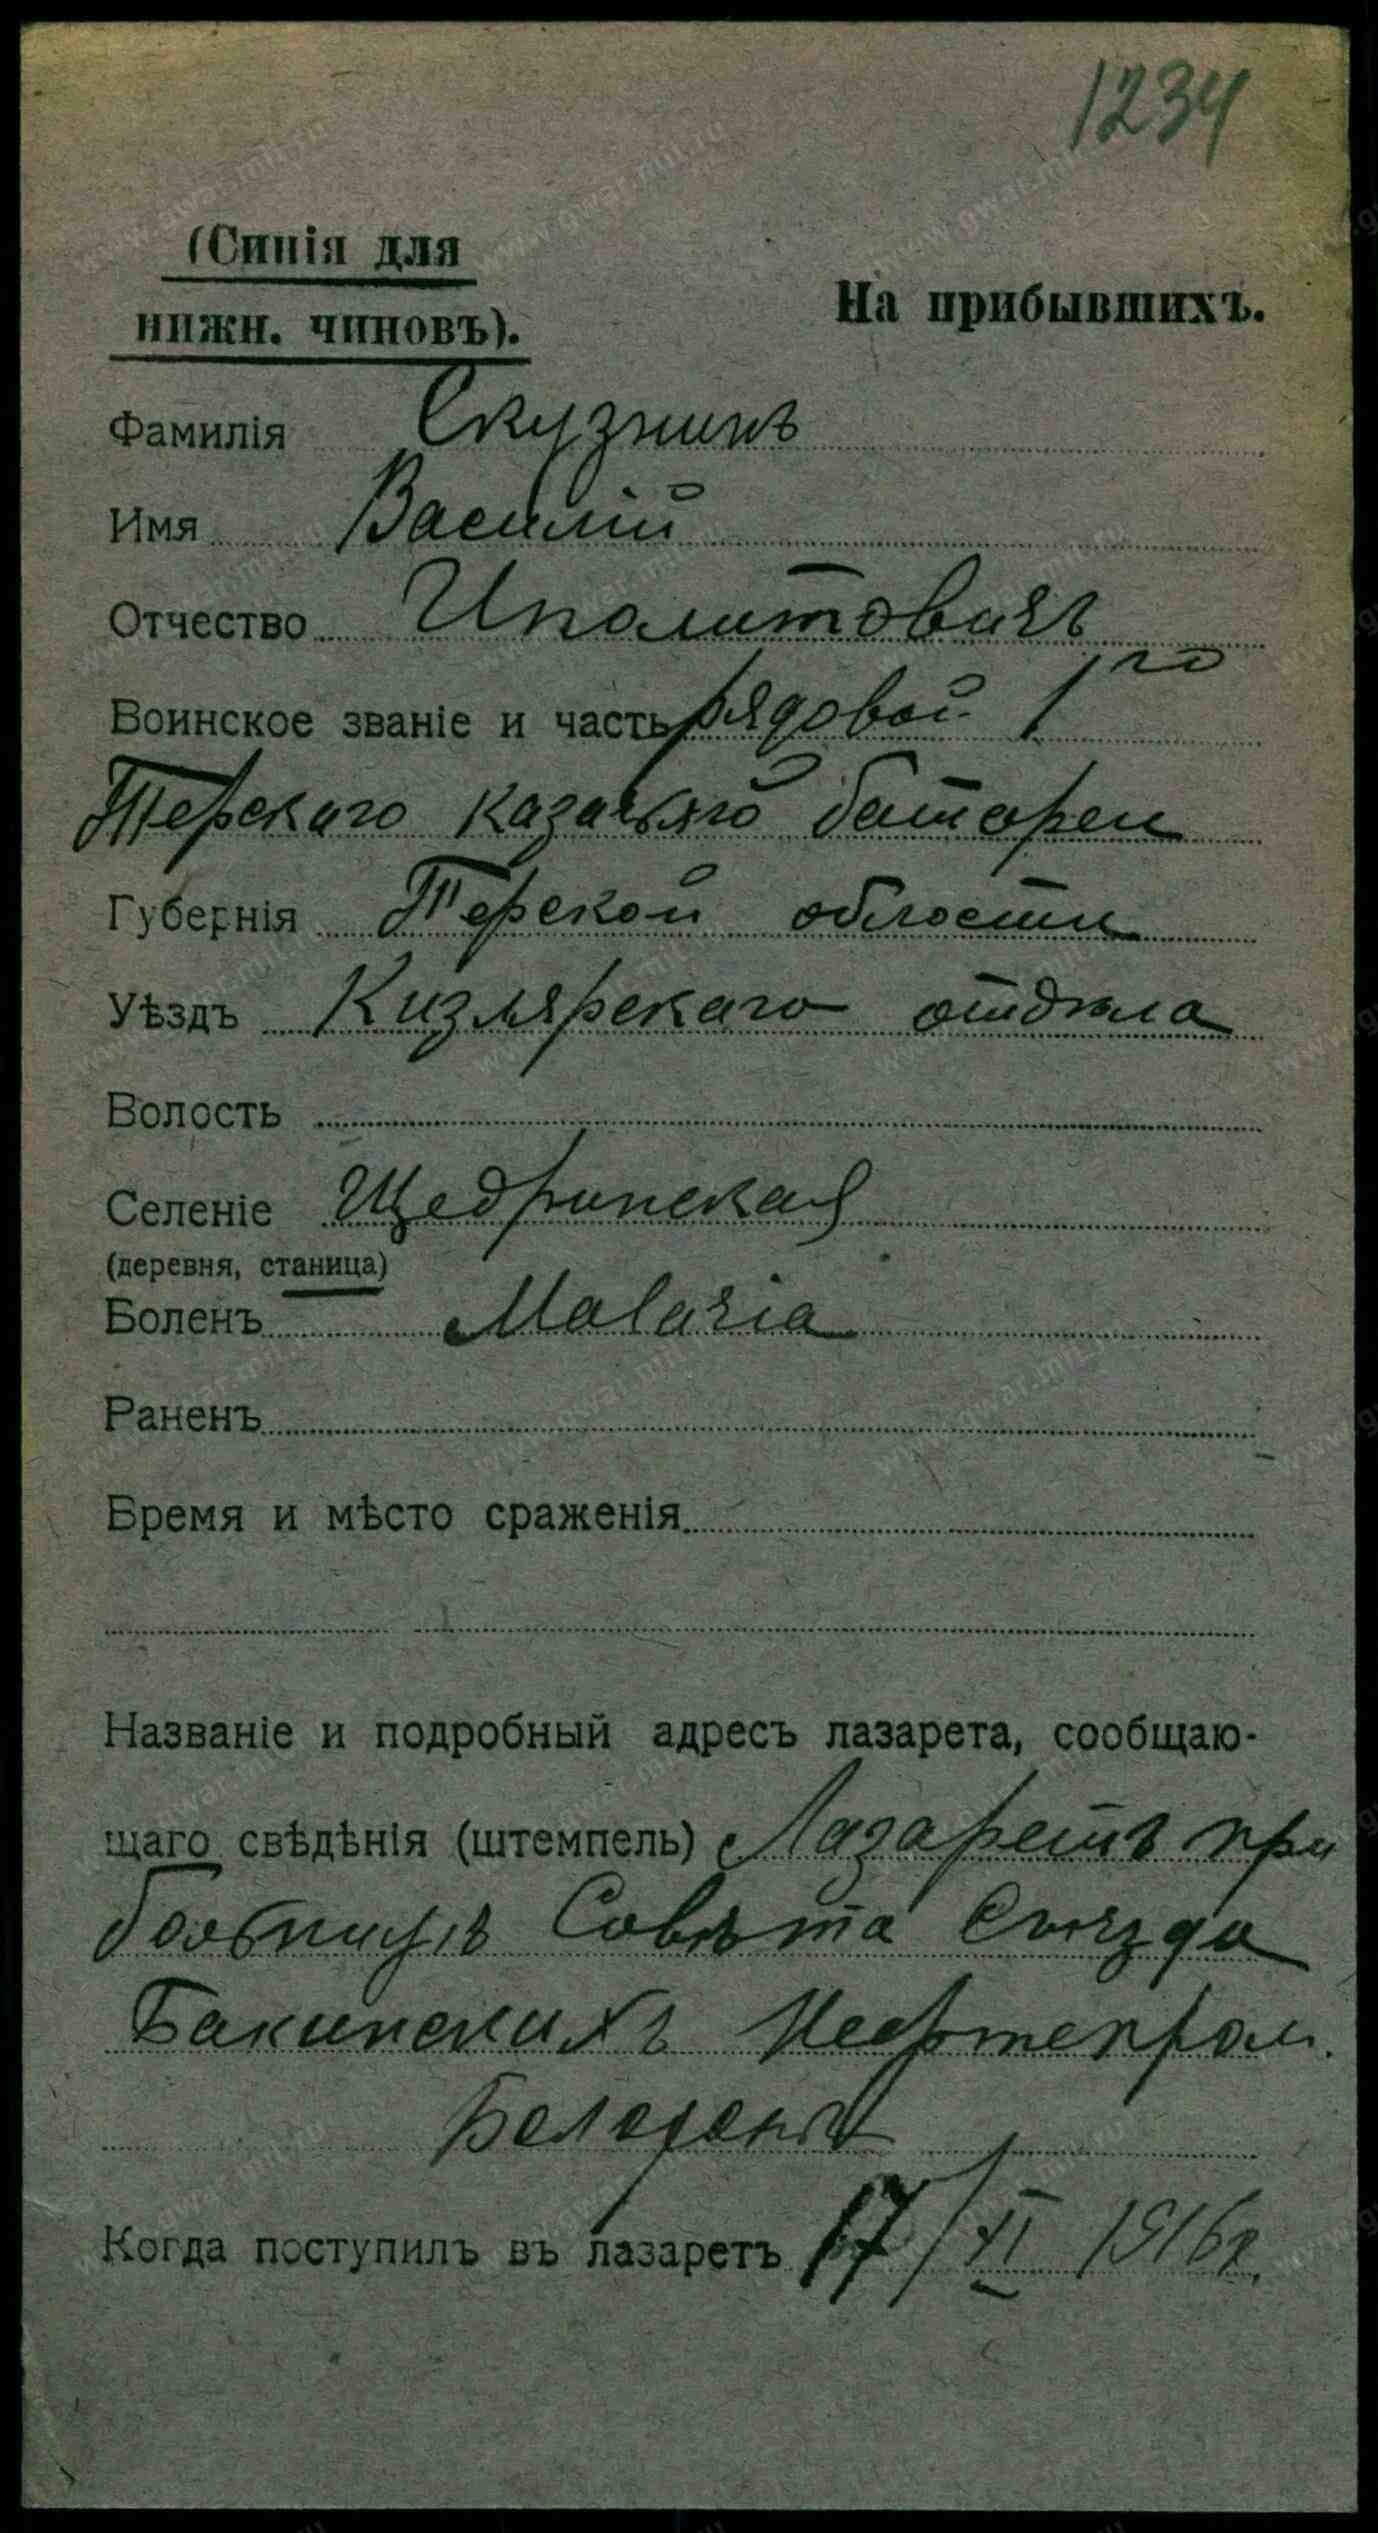 1234
(Синія для
нижн. чиновъ).
На прибывшихъ.
Фамилія Скузникъ
Имя Василій
Отчество Иполитовичъ
Воинское званіе и часть рядовой 1го
Терскаго казачьяго батареи
Губернія Терской области
Уѣздъ Кизлярскаго отдѣла
Волость
Селеніе Щедринская
(деревня, станица)
Боленъ Malaria
Раненъ
Время и мѣсто сраженія
Названіе и подробный адресъ лазарета, сообщаю-
щаго свѣдѣнія (штемпель) Лазаретъ при
больницѣ Совѣта Съѣзда
Бакинскихъ Нефтепром.
Когда поступилъ въ лазаретъ 17/VI 1916г.
www.gwar.mil.ru